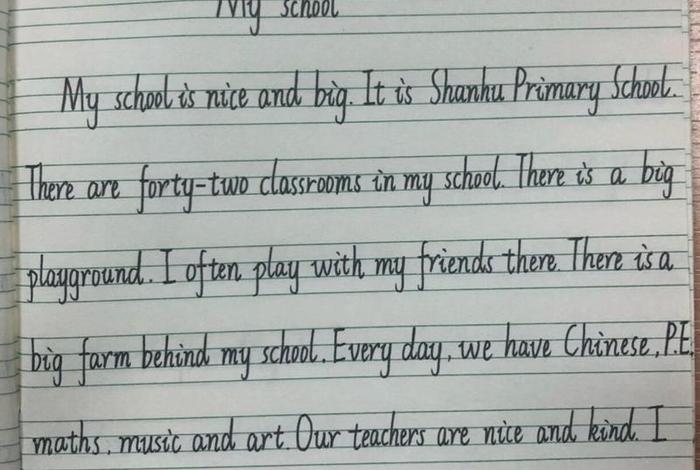 My school
My school is nice and big. It is Shanhu Primary School.
There are forty-two classrooms in my school. There is a big
playground. I often play with my friends there. There is a
big farm behind my school. Every day, we have Chinese, P.E.
maths, music and art. Our teachers are nice and kind. I